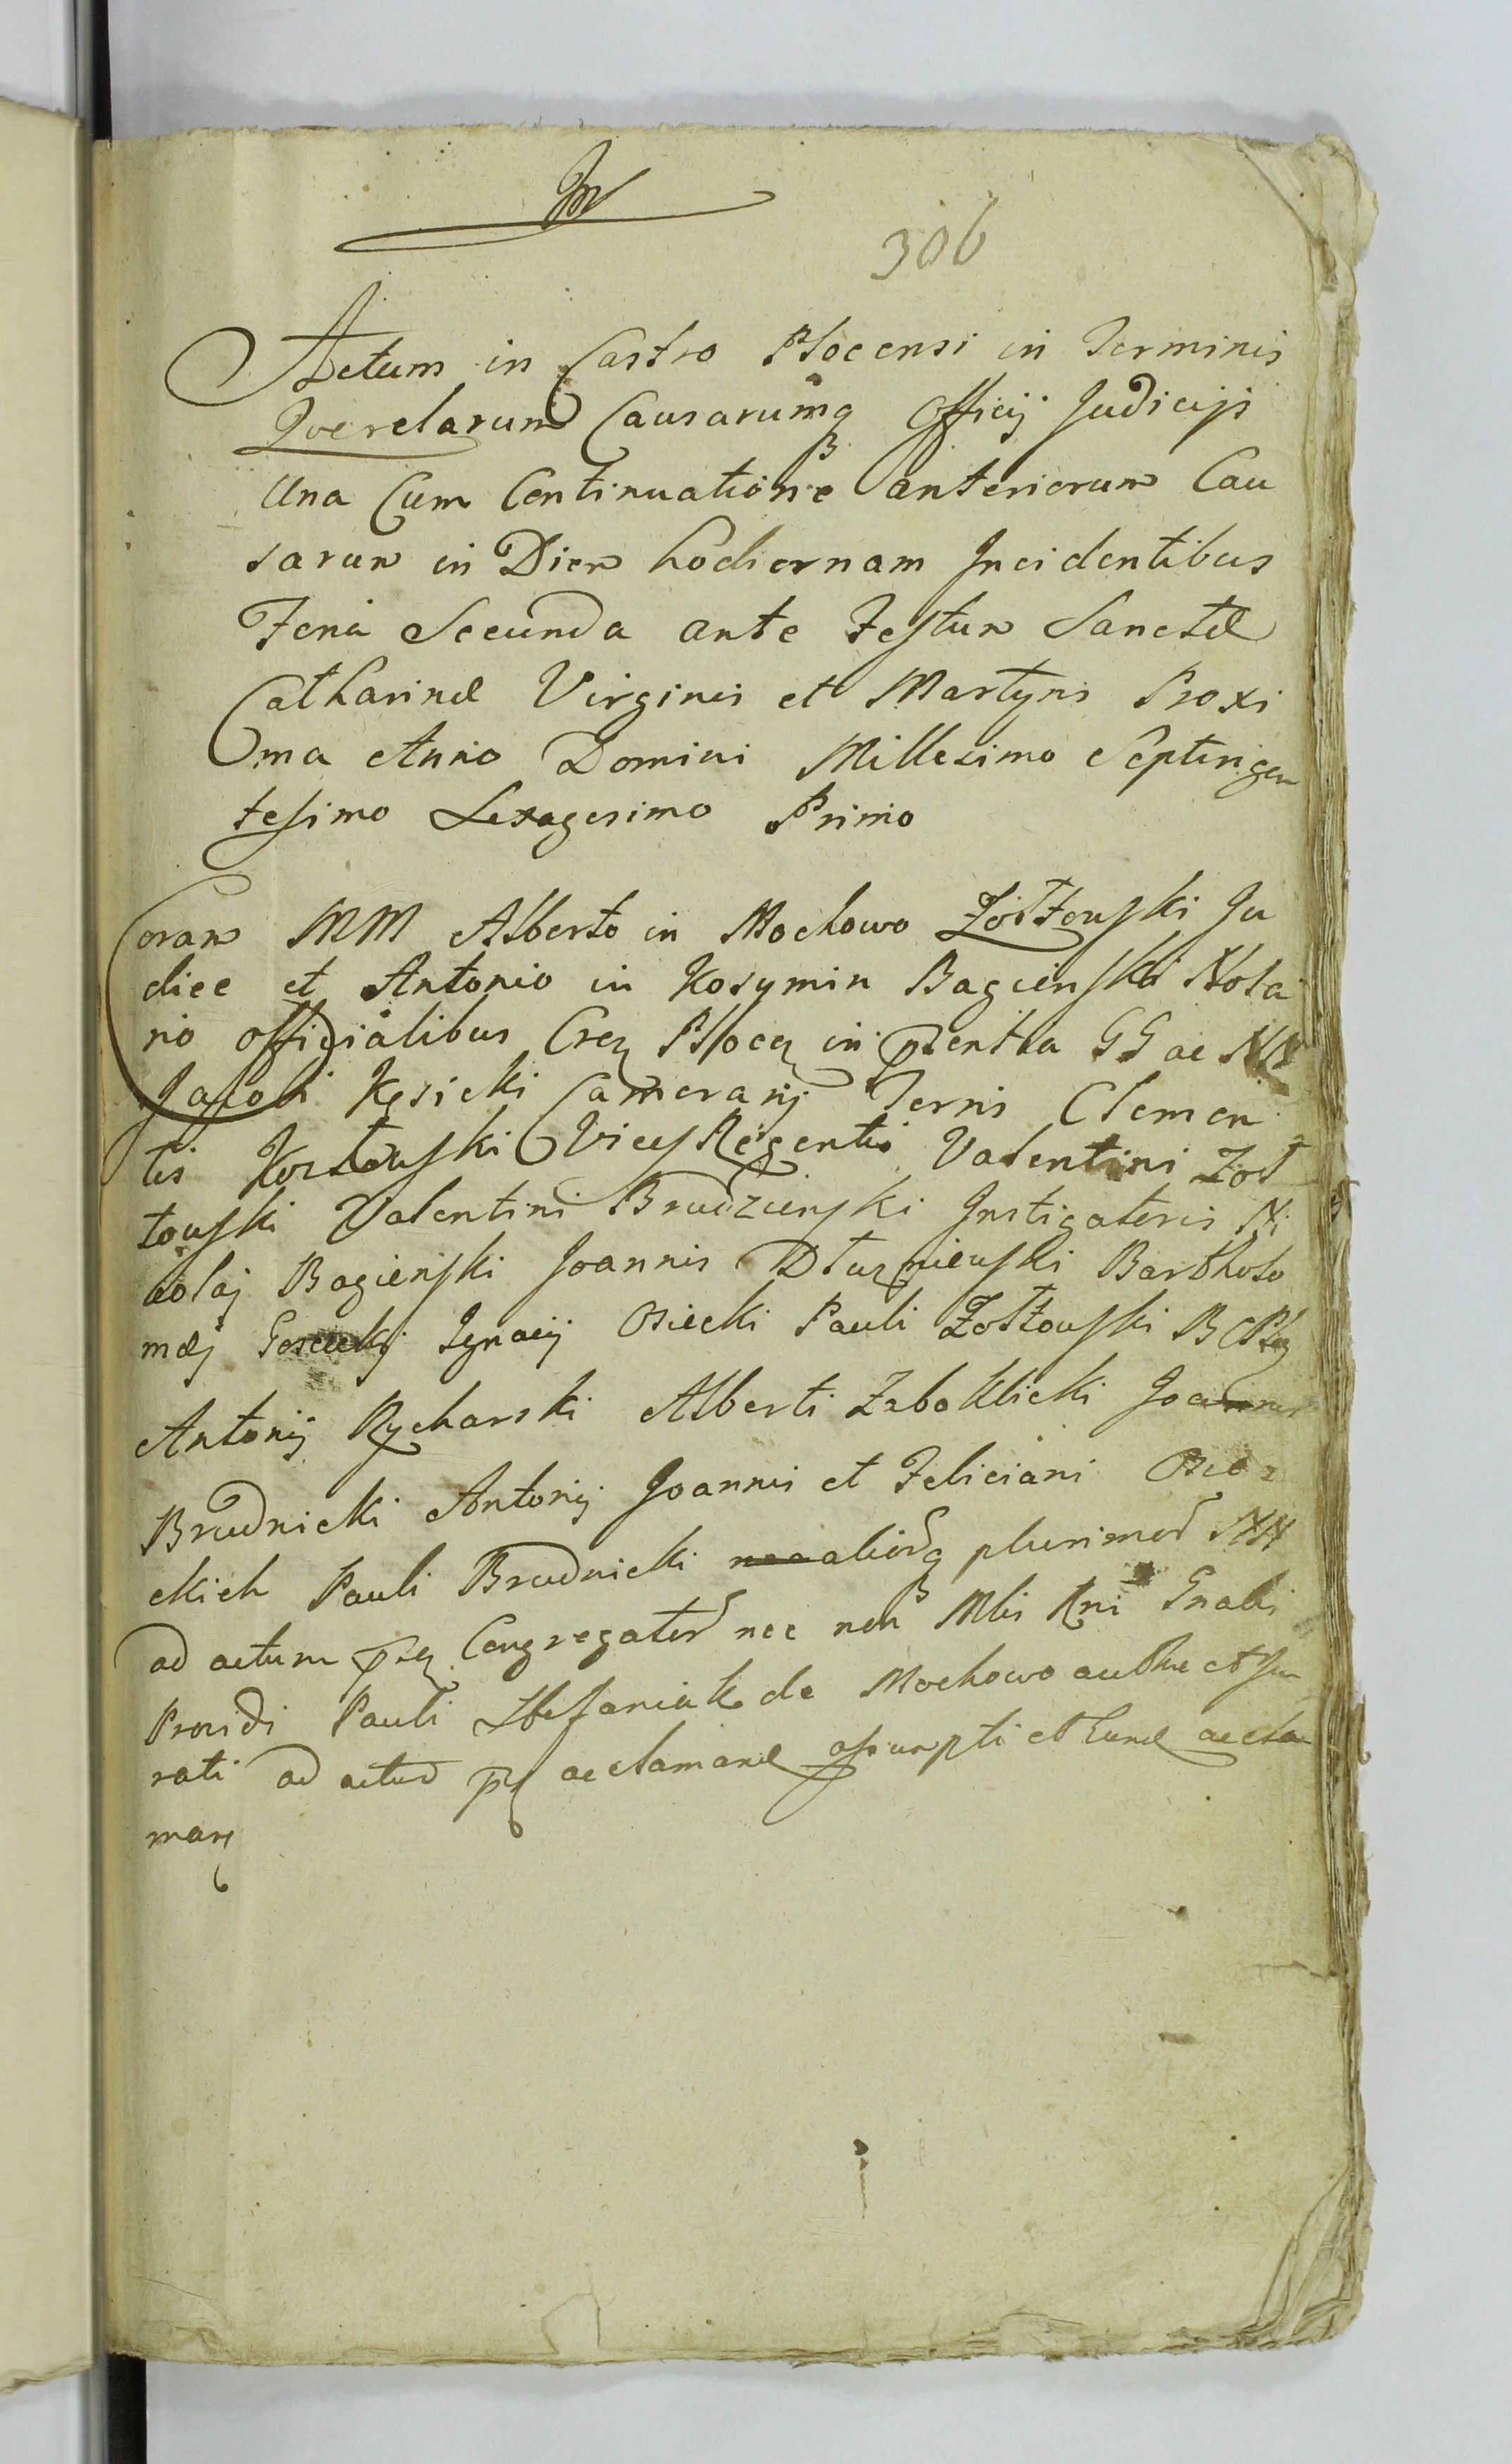 306
Actum in Castro Plocensi in Terminis
Querelarum Causarumq Officij Judicijs
Una Cum Continuatione anteriorum Cau
sarum in Diem hodiernam Incidentibus
Feria Secunda ante Festum Sanctæ
Catharinæ Virginis et Martyris Proxi
ma Anno Domini Millesimo Septingen
tesimo Sexagesimo Primo
Coram MM Alberto in Mochowo Zółtowski Ju
dice et Antonio in Kosymin Bagieński Nota
rio officialibus Crez Plocen in pzentia GG ac NN
Jacobi Kęsicki Camerarij Terris Clemen
tis Kozłowski Vices Regentis Valentini Zoł
towski Valentini Brudzieński Instigatoris Ni
colaj Bagieński Joannis Dłuzniewski Bartholo
mæj Gosecki Ignacij Osiecki Pauli Zołtowski BCPlz
Antonij Rycharski Alberti Zaboklicki Joannis
Brudnicki Antonij Joannis et Feliciani Osie
ckich Pauli Brudnicki aliorq plurimor NN
ad actum Congregator nec non Mlis Rni Gnalis
Providi Pauli Stefaniak de Mochowo authe et Ju
rati ad actus acclamand assumpti et Tunc accla
man